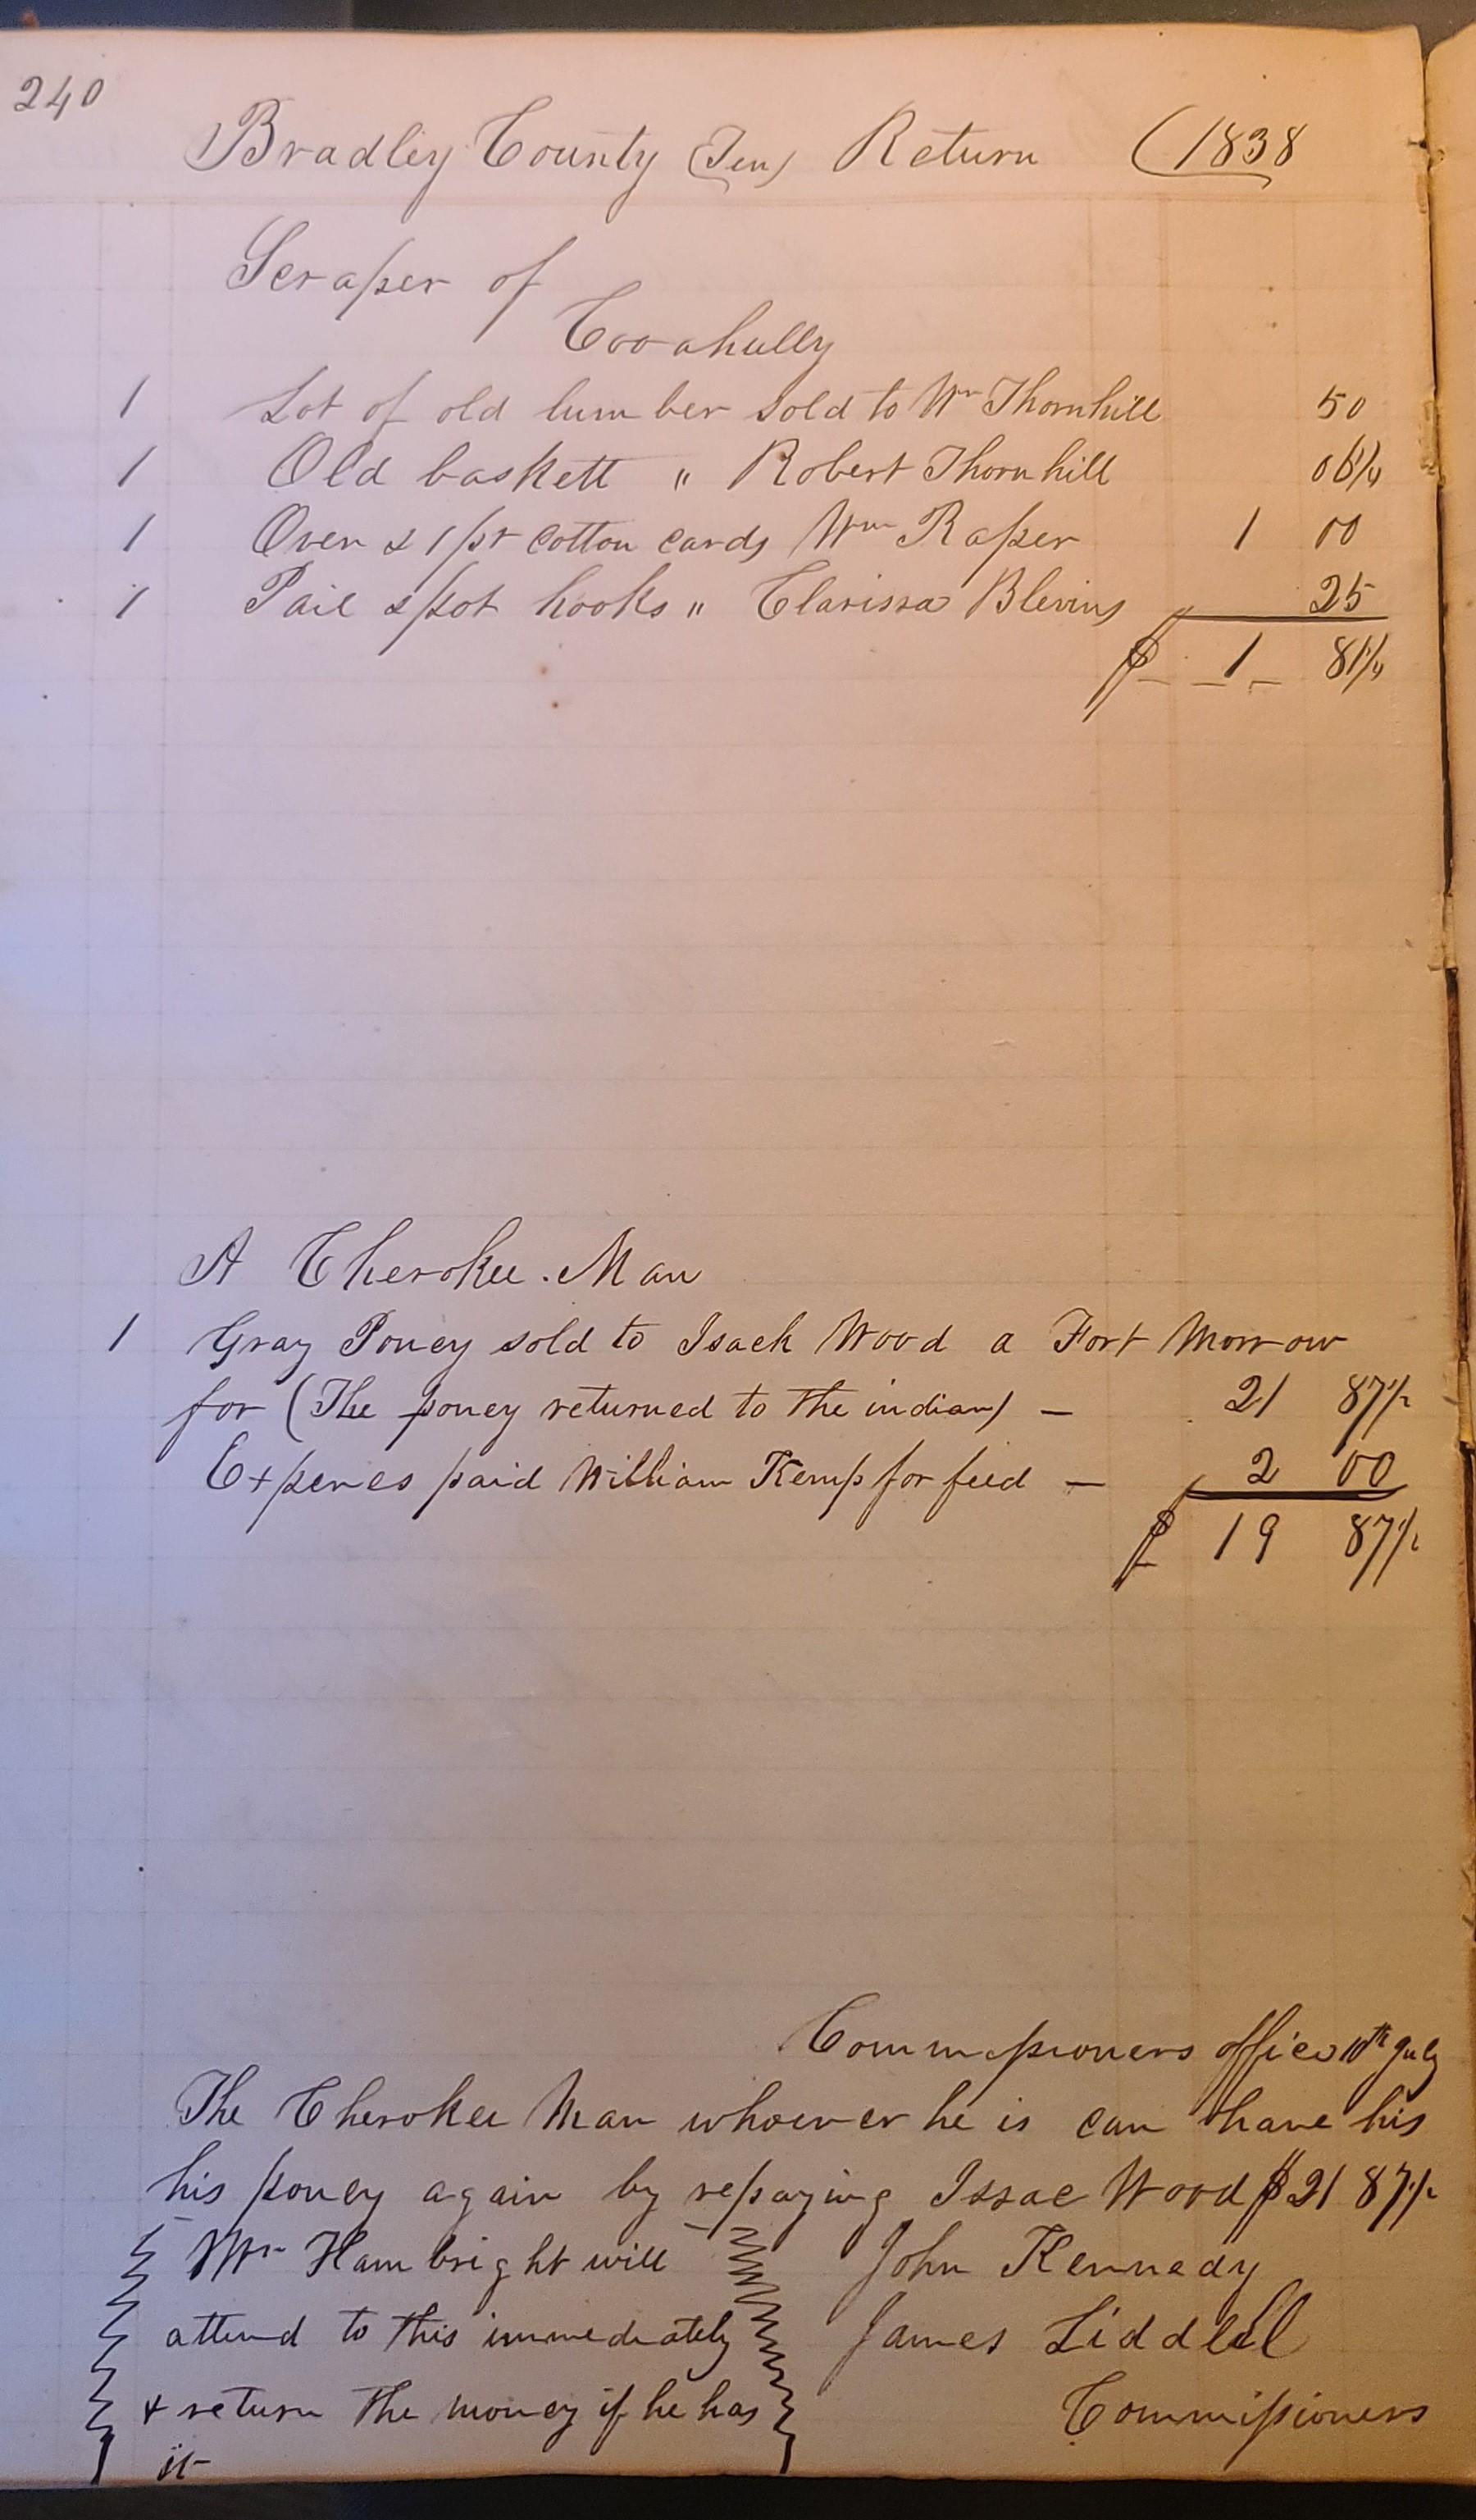 240
Bradley County (Ten) Return (1838
Scraper of
Cooahully
1 Lot of old lumber sold to Wm Thornhill 50
1 Old baskett " Robert Thornhill 06 1/4
1 Oven & 1 pr cotton cards Wm Raper 1 00
1 Pail & pot hooks " Clarissa Blevins 25
$ 1 81 1/4
A Cherokee Man
1 Gray Poney sold to Isack Wood a Fort Morrow
for (The poney returned to the indian) — 21 87 1/2
Expences paid William Kemp for feed — 2 00
$ 19 87 1/2
Commissioners office 10th July
The Cherokee Man whoever he is can have his
his poney again by repaying Issac Wood $21 87 1/2
Mr Hambright will John Kennedy
attend to this immediately James Liddell
& return the money if he has Commissioners
it